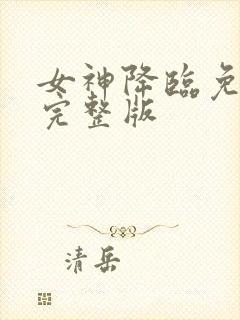 女神降临免
完整版
清岳